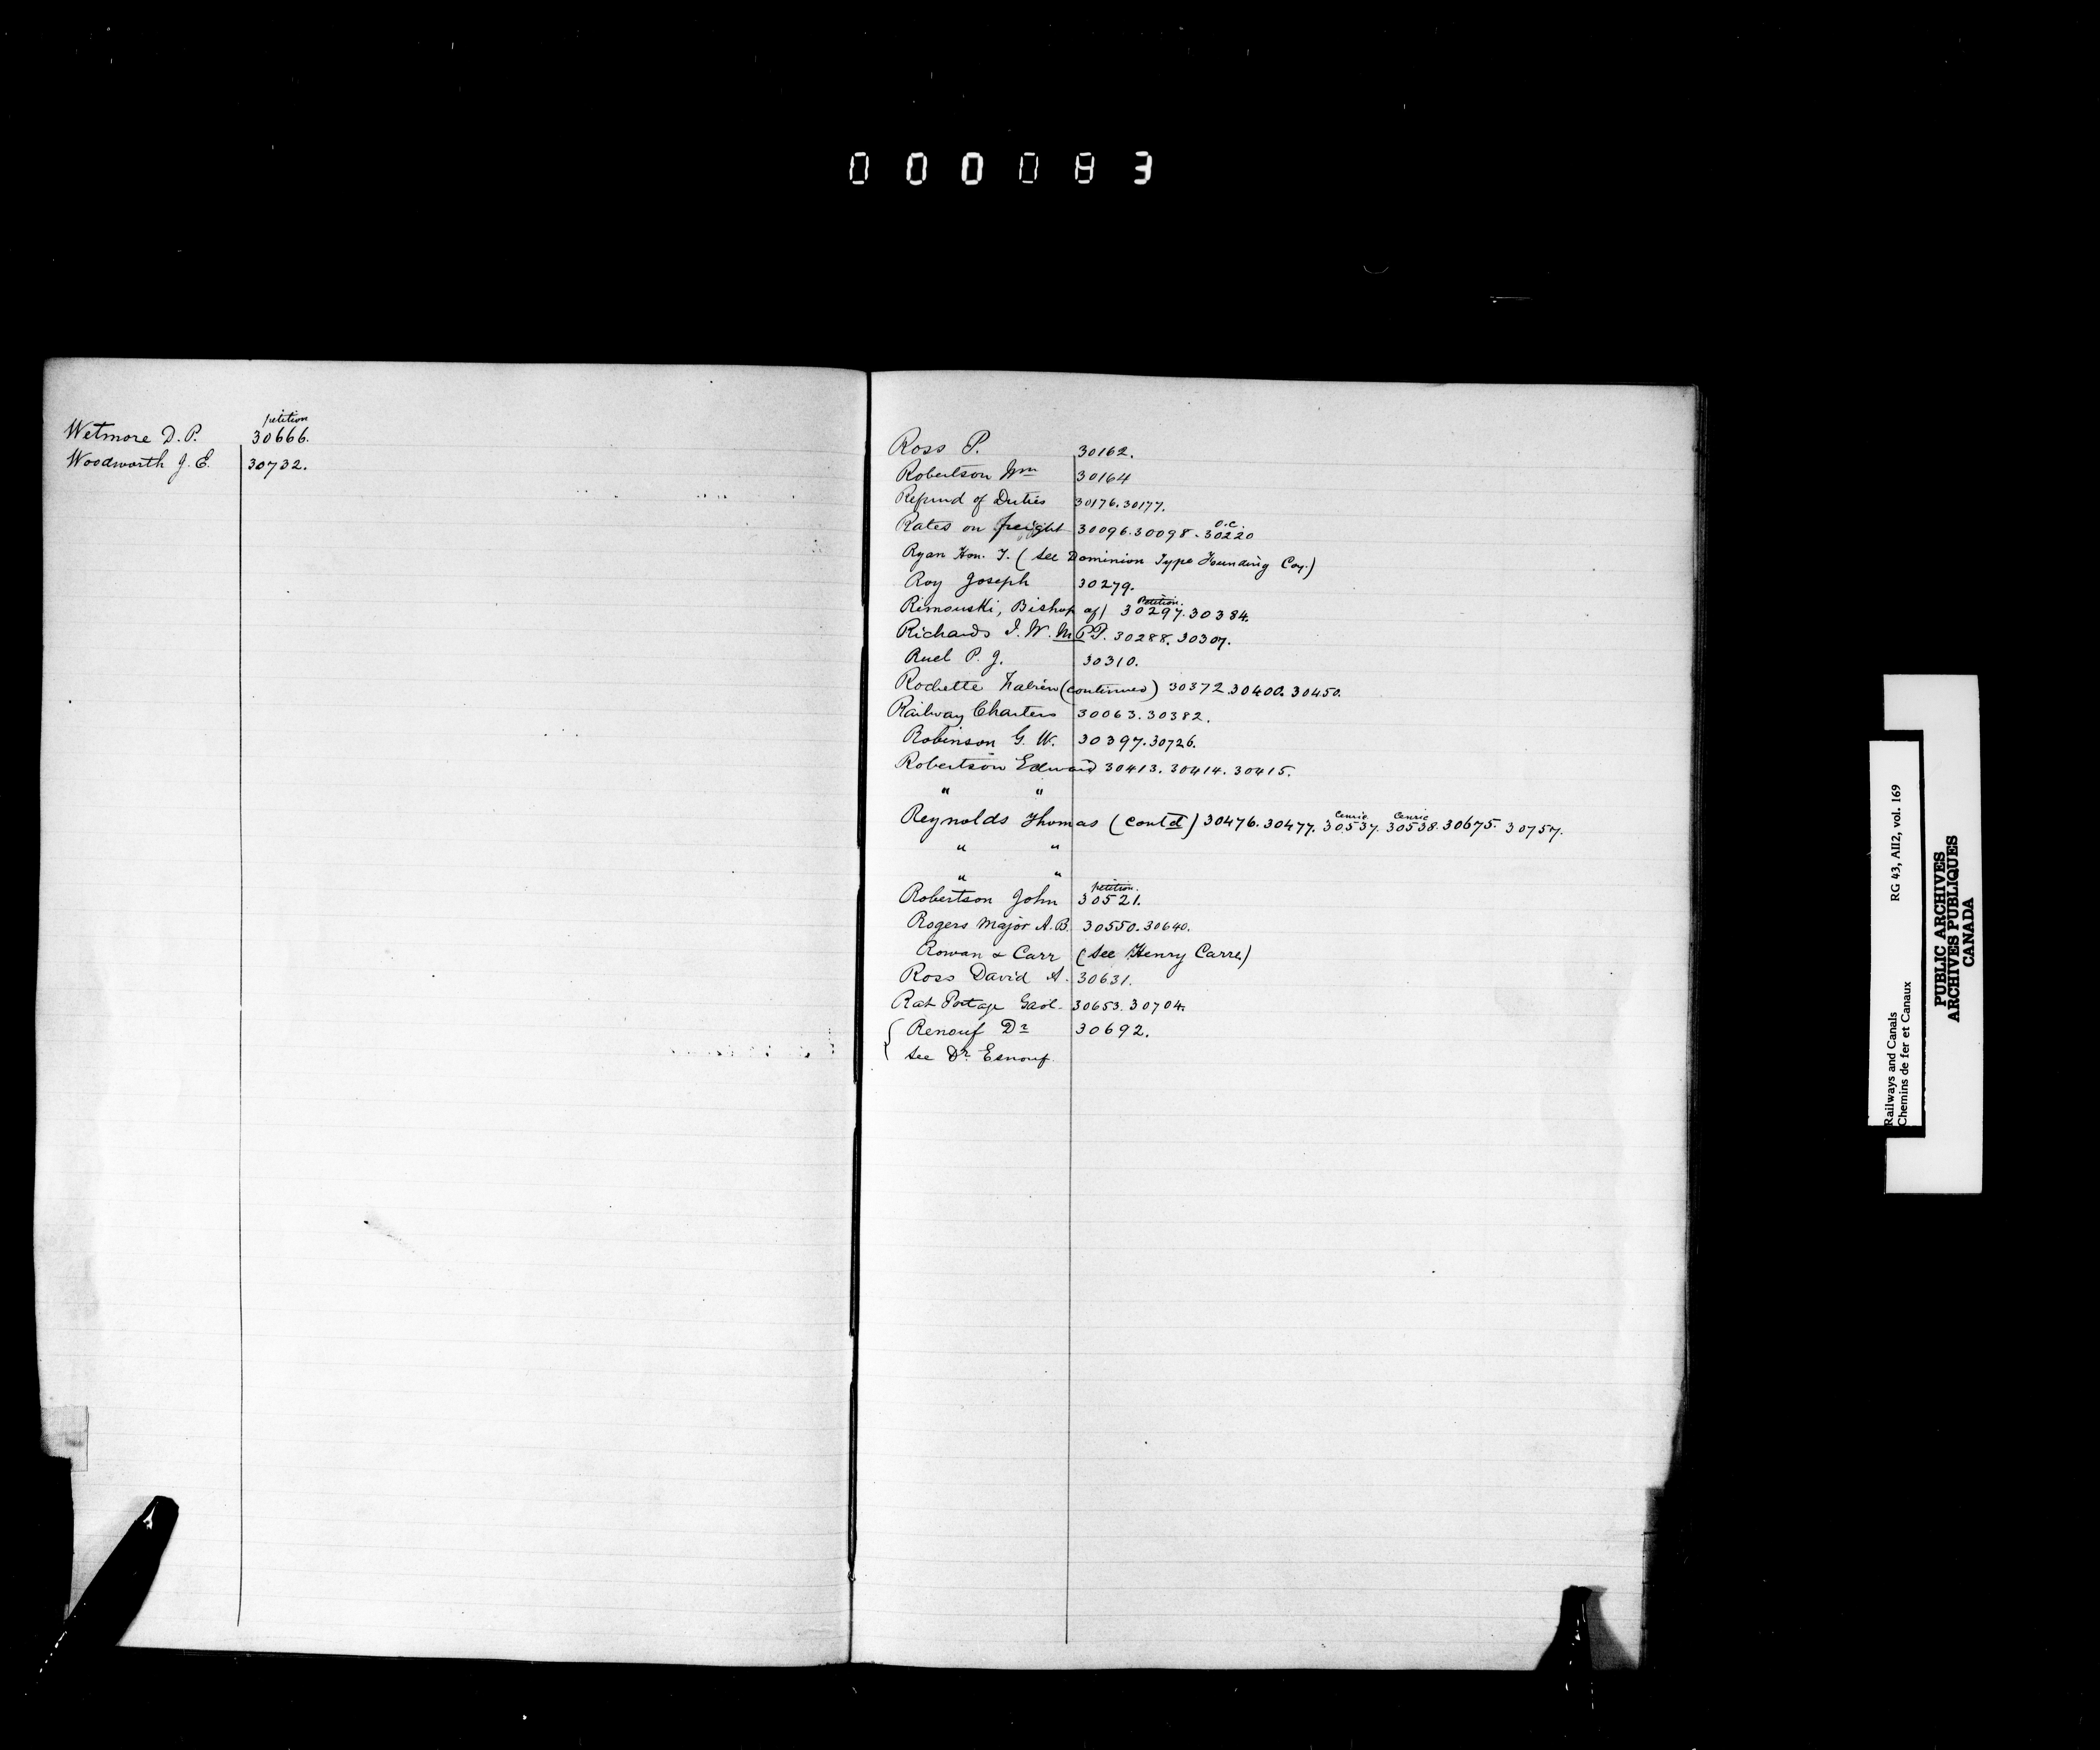 000083
petition
Wetmore D. P. 30666.
Woodworth J. E. 30732.
Ross P. 30162.
Robertson Wm 30164
Refund of Duties 30176.30177.
O.C.
Rates on freight 30096.30098.30220
Ryan Hon. T. (see Dominion Type Founding Coy.)
Roy Joseph 30279.
Petition.
Rimouski, Bishop of) 30297.30384.
Richards J. W. M.P.P. 30288.30307.
Ruel P. J. 30310.
Rochette (continued) 30372.30400.30450.
Railway Charters 30063.30382.
Robinson G. W. 30397.30726.
Robertson Edward 30413. 30414. 30415.
" "
Reynolds Thomas (contd) 30476.30477. 30537. 30538. 30675. 30757.
" "
" "
petition.
Robertson John 30521.
Rogers Major A.B. 30550.30640.
Rowan & Carr (see Henry Carre)
Ross David A. 30631.
Rat Portage Gaol 30653.30704.
{ Renouf Dr 30692.
see Dr. Esnouf.
Railways and Canals RG 43, AII2, vol. 169
Chemins de fer et Canaux
PUBLIC ARCHIVES
ARCHIVES PUBLIQUES
CANADA